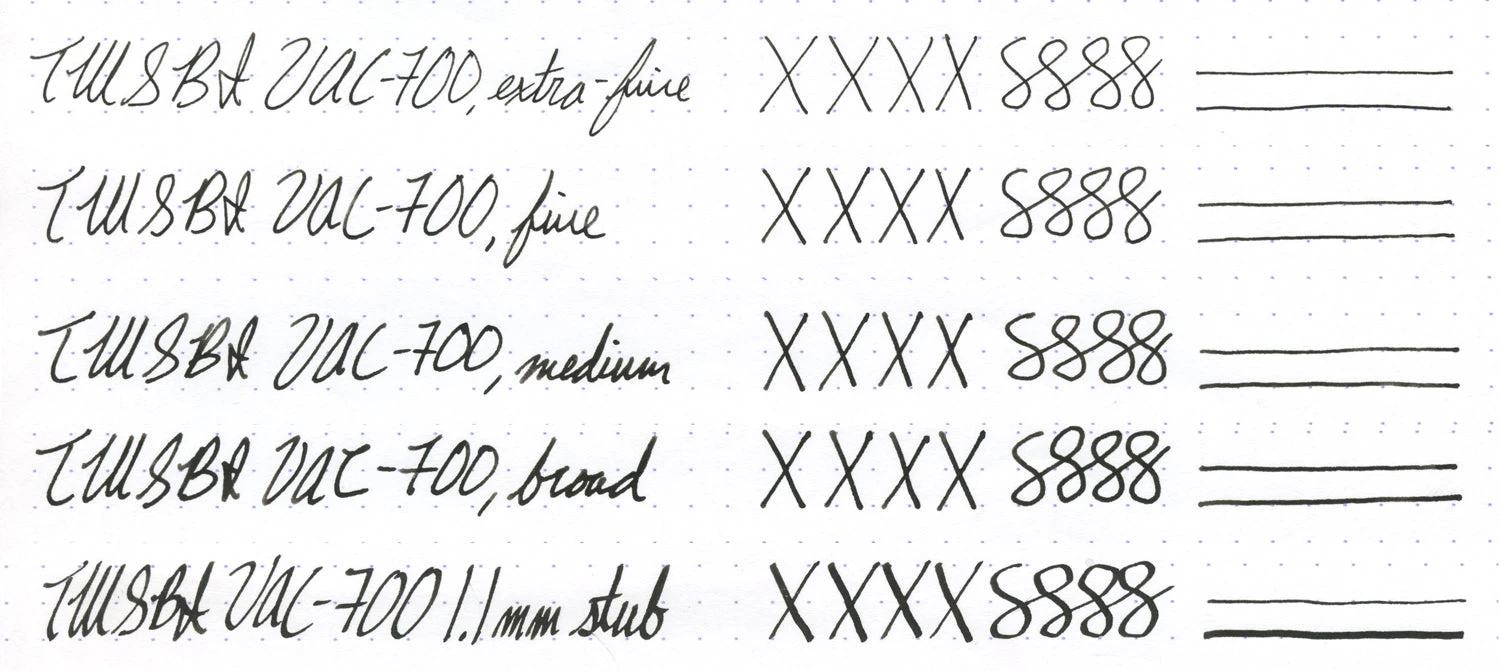 TWSBI VAC-700, extra-fine XXXX 8888
TWSBI VAC-700, fine XXXX 8888
TWSBI VAC-700, medium XXXX 8888
TWSBI VAC-700, broad XXXX 8888
TWSBI VAC-700 1.1mm stub XXXX 8888